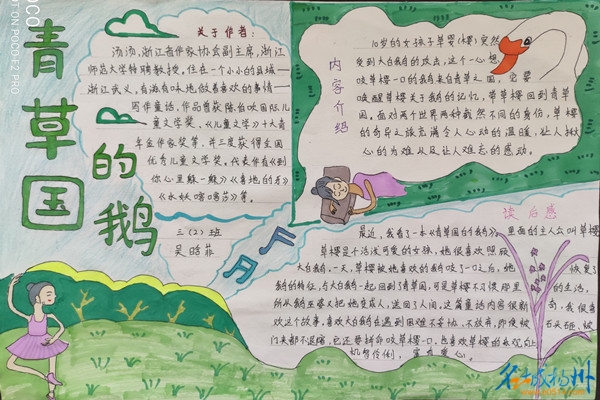 青草国的鹅
关于作者:
汤汤,浙江省作家协会副主席,浙江
师范大学特聘教授,住在一个小小的县城——
浙江武义,有滋有味地做喜欢的事情——
写作童话,作品曾获陈伯吹国际儿
童文学奖、《儿童文学》十大青
年金作家奖等,并三度获得全国
优秀儿童文学奖,代表作有《到
你心里躲一躲》《喜地的牙》
《水妖喀喀莎》等。
三(2)班
内容介绍
10岁的女孩子草婴(樱)突然
受到大白鹅的攻击,这个一心想
咬草樱一口的鹅来自青草之国,它要
唤醒草樱关于鹅的记忆,带草樱回到青草
国。面对两个世界两种截然不同的身份,草樱
的奇异之旅充满令人心动的温暖,让人揪
心的为难以及让人难忘的感动。
读后感
最近,我看了一本《青草国的鹅》,里面的主人公叫草樱
草樱是个活泼可爱的女孩,她很喜欢照顾
大白鹅。一天,草樱被她喜欢的鹅咬了一口之后,她恢复了
鹅的特征,与大白鹅一起回到了青草国,可是草樱不习惯那里的生活,
所以鹅王要又把她变成人,送回了人间,这篇童话内容很新奇,我很喜
欢这个故事,喜欢大白鹅在遇到困难不妥协,不放弃,即使被石头砸,被
门夹都不退缩,它还要拼命咬草樱一口,也喜欢草樱的乐观,让
名城扬州